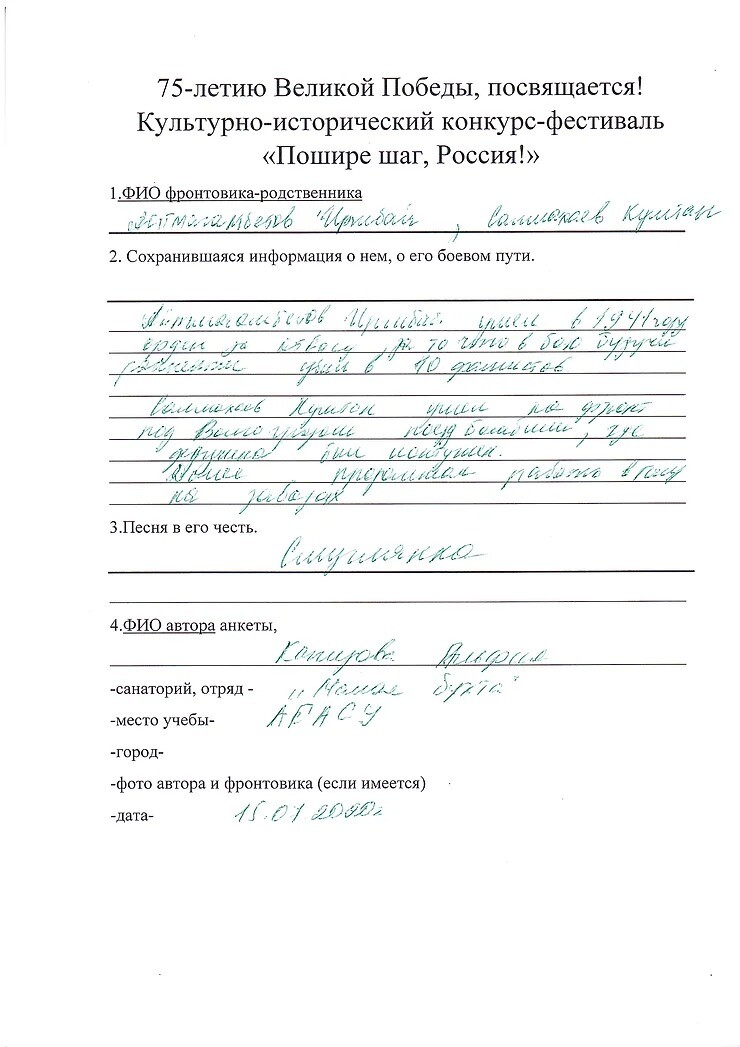 75-летию Великой Победы, посвящается!
Культурно-исторический конкурс-фестиваль
«Пошире шаг, Россия!»
1.ФИО фронтовика-родственника
Иримбай , Салмакаев Культан
2. Сохранившаяся информация о нем, о его боевом пути.
ушел в 1941 году
орден за отвагу, за то что в бою будучи
убил 10 фашистов
Салмакаев ушел на фронт
под Волгоградом поезд бомбили, где
был контужен.
Позже продолжал работать в тылу
на заводах
3.Песня в его честь.
Смуглянка
4.ФИО автора анкеты,
Каширова
-санаторий, отряд - "Малая бухта"
-место учебы- АГАСУ
-город-
-фото автора и фронтовика (если имеется)
-дата- 15.01 2020г